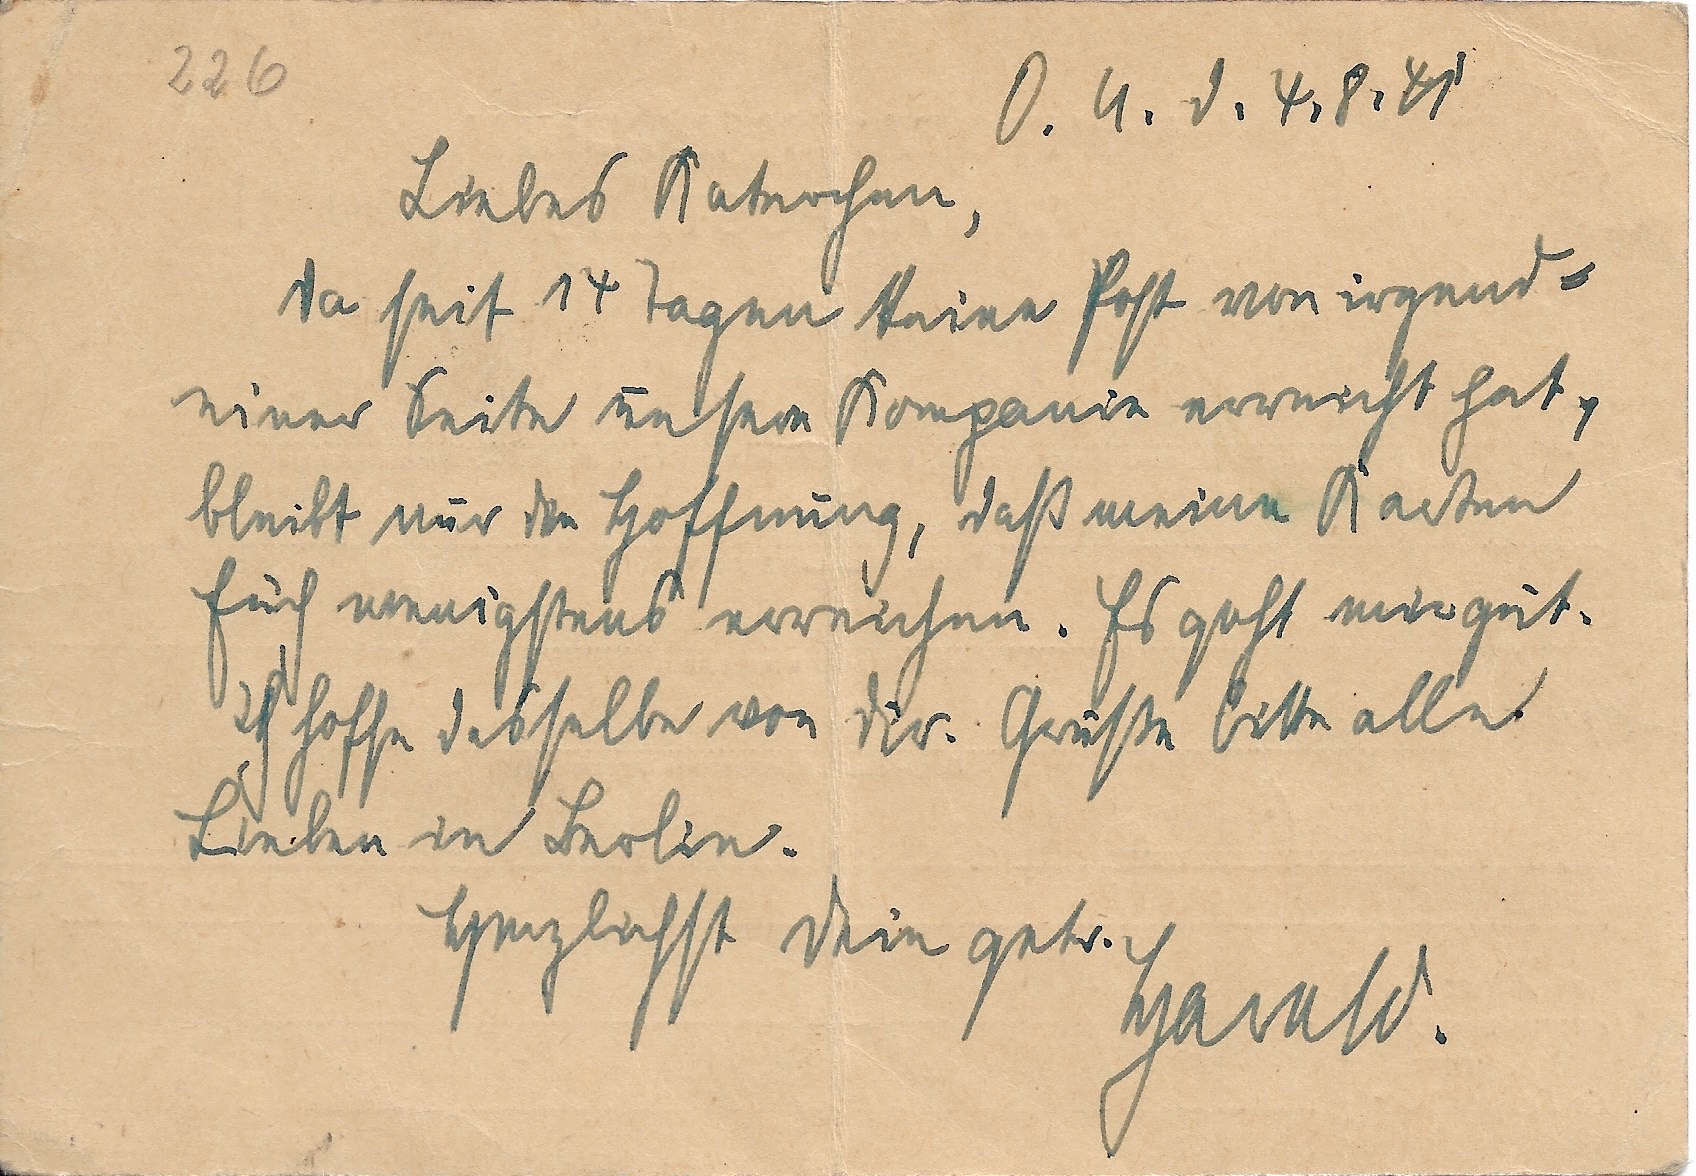 226
O. U. d. 4.8.41
Liebes Katerchen,
da seit 14 Tagen keine Post von irgend=
einer Seite unsere Kompanie erreicht hat,
bleibt nur die Hoffnung, daß meine Karten
Euch wenigstens erreichen. Es geht mir gut.
Ich hoffe dasselbe von Dir. Grüße bitte alle
Lieben in Berlin.
Herzlichst Dein getr.
Harald.